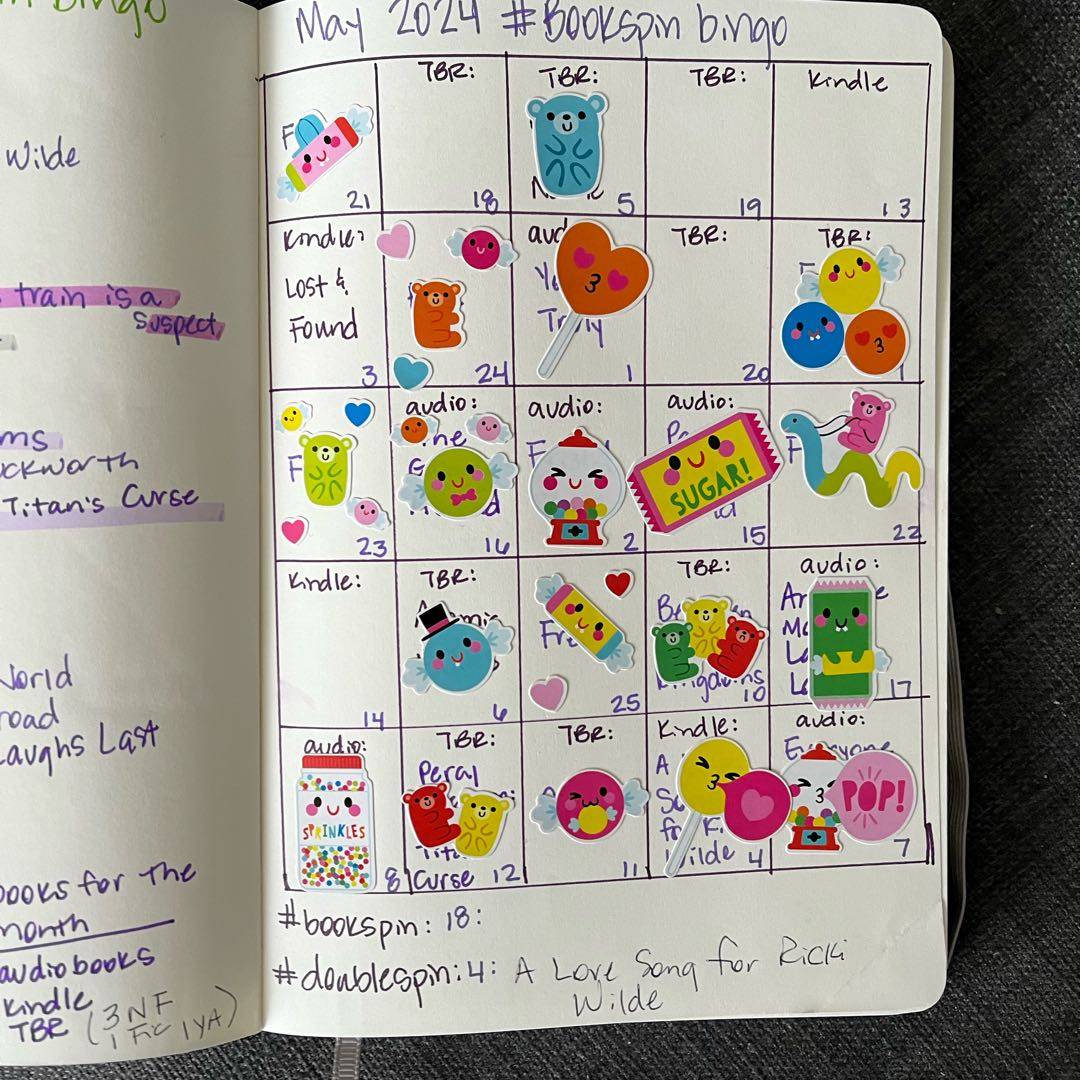 in bingo
Wilde
train is a
suspect
ms
uckworth
Titan's Curse
World
road
Laughs Last
books for the
month
audiobooks
Kindle
TBR (3 NF
1 Fic 1 YA)
May 2024 #Bookspin bingo
TBR:
TBR:
TBR:
Kindle
F
21
18
5
19
13
Kindle:
Lost &
Found
3
24
aud
Yo
Truly
1
TBR:
20
TBR:
F
1
F
23
audio:
16
audio:
F
2
audio:
SUGAR!
15
F
22
Kindle:
14
TBR:
6
Fr
25
TBR:
Kingdoms
10
audio:
17
audio:
SPRINKLES
8
TBR:
Peral
Tita
Curse 12
TBR:
11
Kindle:
A
So
for Ki
Wilde 4
audio:
Everyone
POP!
7
#bookspin: 18:
#doublespin: 4: A Love Song for Ricki
Wilde